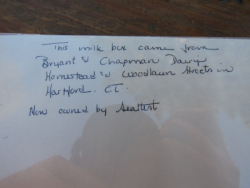 This milk box came from
Bryant & Chapman Dairy
Homestead & Woodlawn Streets in
Hartford. CT.
Now owned by Sealtest